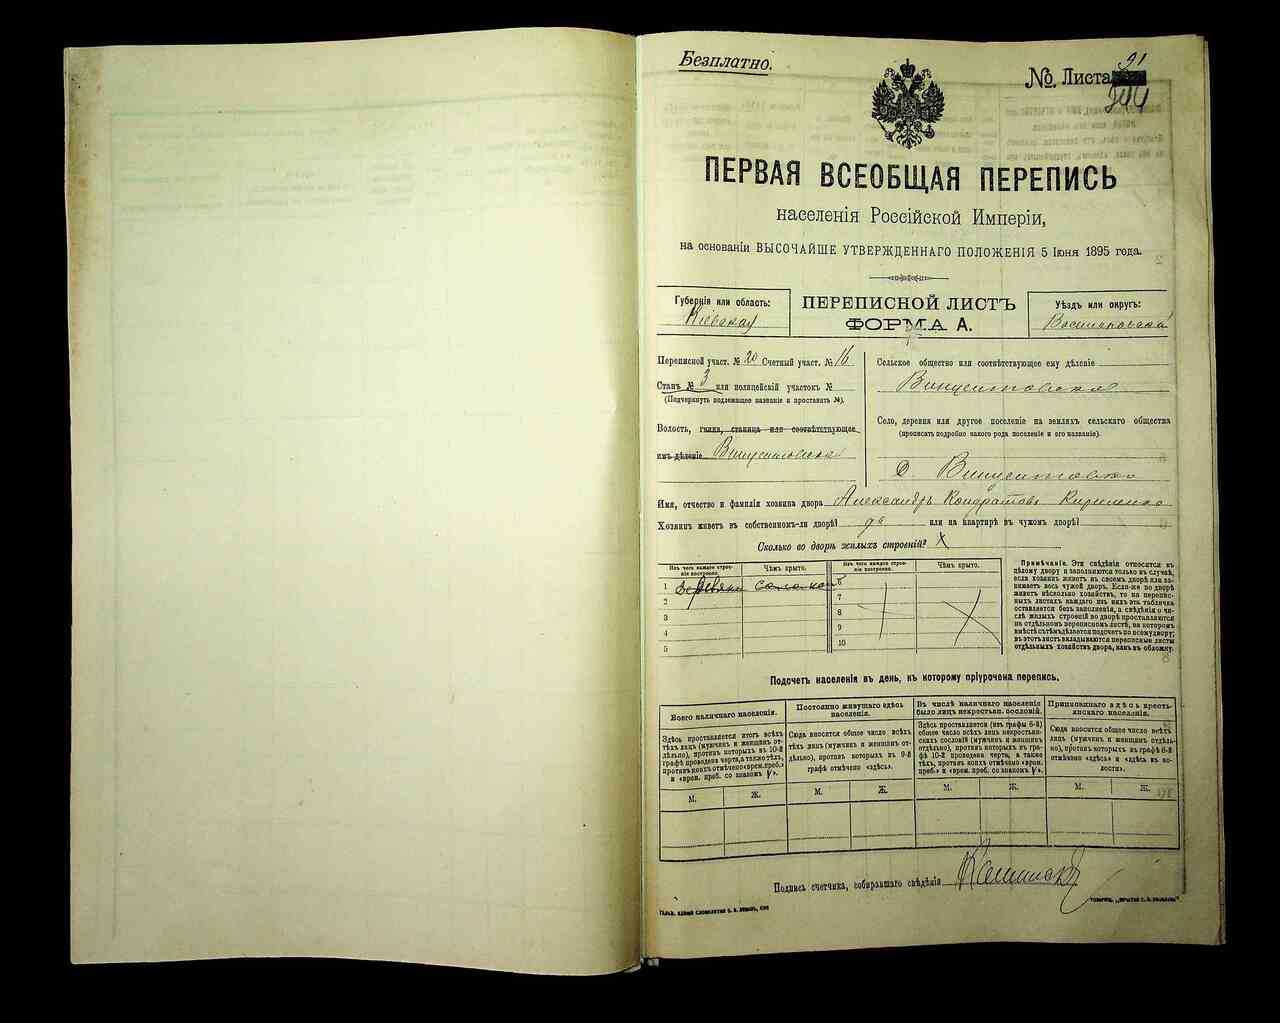 Безплатно.
№ Листа 91
ПЕРВАЯ ВСЕОБЩАЯ ПЕРЕПИСЬ
населенія Россійской Имперіи,
на основаніи ВЫСОЧАЙШЕ УТВЕРЖДЕННАГО ПОЛОЖЕНІЯ 5 Іюня 1895 года.
Губернія или область:
Кіевская
ПЕРЕПИСНОЙ ЛИСТЪ
ФОРМА А.
Уѣздъ или округъ:
Переписной участ. № 20 Счетный участ. № 16
Станъ № 3 или полицейскій участокъ №
(Подчеркнуть подлежащее названіе и проставить №).
Волость, гмина, станица или соотвѣтствующее
имъ дѣленіе
Сельское общество или соотвѣтствующее ему дѣленіе
Село, деревня или другое поселеніе на земляхъ сельскаго общества
(прописать подробно какого рода поселеніе и его названіе).
Имя, отчество и фамилія хозяина двора Александръ Кондратовъ Кириленко
Хозяинъ живетъ въ собственномъ-ли дворѣ? да или на квартирѣ въ чужомъ дворѣ?
Сколько во дворѣ жилыхъ строеній?
Изъ чего каждое строеніе построено.
Чѣмъ крыто.
Изъ чего каждое строеніе построено.
Чѣмъ крыто.
1
2
3
4
5
6
7
8
9
10
Примѣчаніе. Эти свѣдѣнія относятся къ
цѣлому двору и заполняются только въ случаѣ,
если хозяинъ живетъ въ своемъ дворѣ или за-
нимаетъ весь чужой дворъ. Если-же во дворѣ
живетъ нѣсколько хозяйствъ, то на перепис-
ныхъ листахъ каждаго изъ нихъ эта табличка
оставляется безъ заполненія, а свѣдѣнія о чи-
слѣ жилыхъ строеній во дворѣ проставляются
на отдѣльномъ переписномъ листѣ, на которомъ
вмѣстѣ съ тѣмъ дѣлается подсчетъ по всему двору;
въ этотъ листъ вкладываются переписные листы
отдѣльныхъ хозяйствъ двора, какъ въ обложку.
Подсчетъ населенія въ день, къ которому пріурочена перепись.
Всего наличнаго населенія.
Здѣсь проставляется итогъ всѣхъ
тѣхъ лицъ (мужчинъ и женщинъ от-
дѣльно), противъ которыхъ въ 10-й
графѣ проведена черта, а также тѣхъ,
противъ коихъ отмѣчено «врем. преб.»
и «врем. преб. со знакомъ V».
Постоянно живущаго здѣсь
населенія.
Сюда вносится общее число всѣхъ
тѣхъ лицъ (мужчинъ и женщинъ от-
дѣльно), противъ которыхъ въ 9-й
графѣ отмѣчено «здѣсь».
Въ числѣ наличнаго населенія
было лицъ некрестьян. сословій.
Здѣсь проставляется (изъ графы 6-й)
общее число всѣхъ лицъ некрестьян-
скихъ сословій (мужчинъ и женщинъ
отдѣльно), противъ которыхъ въ гра-
фѣ 10-й проведена черта, а также
тѣхъ, противъ коихъ отмѣчено «врем.
преб.» и «врем. преб. со знакомъ V».
Приписаннаго здѣсь кресть-
янскаго населенія.
Сюда вносится общее число всѣхъ
лицъ (мужчинъ и женщинъ отдѣль-
но), противъ которыхъ въ графѣ 8-й
отмѣчено «здѣсь» и «здѣсь въ во-
лости».
М. Ж. М. Ж. М. Ж. М. Ж.
Подпись счетчика, собиравшаго свѣдѣнія